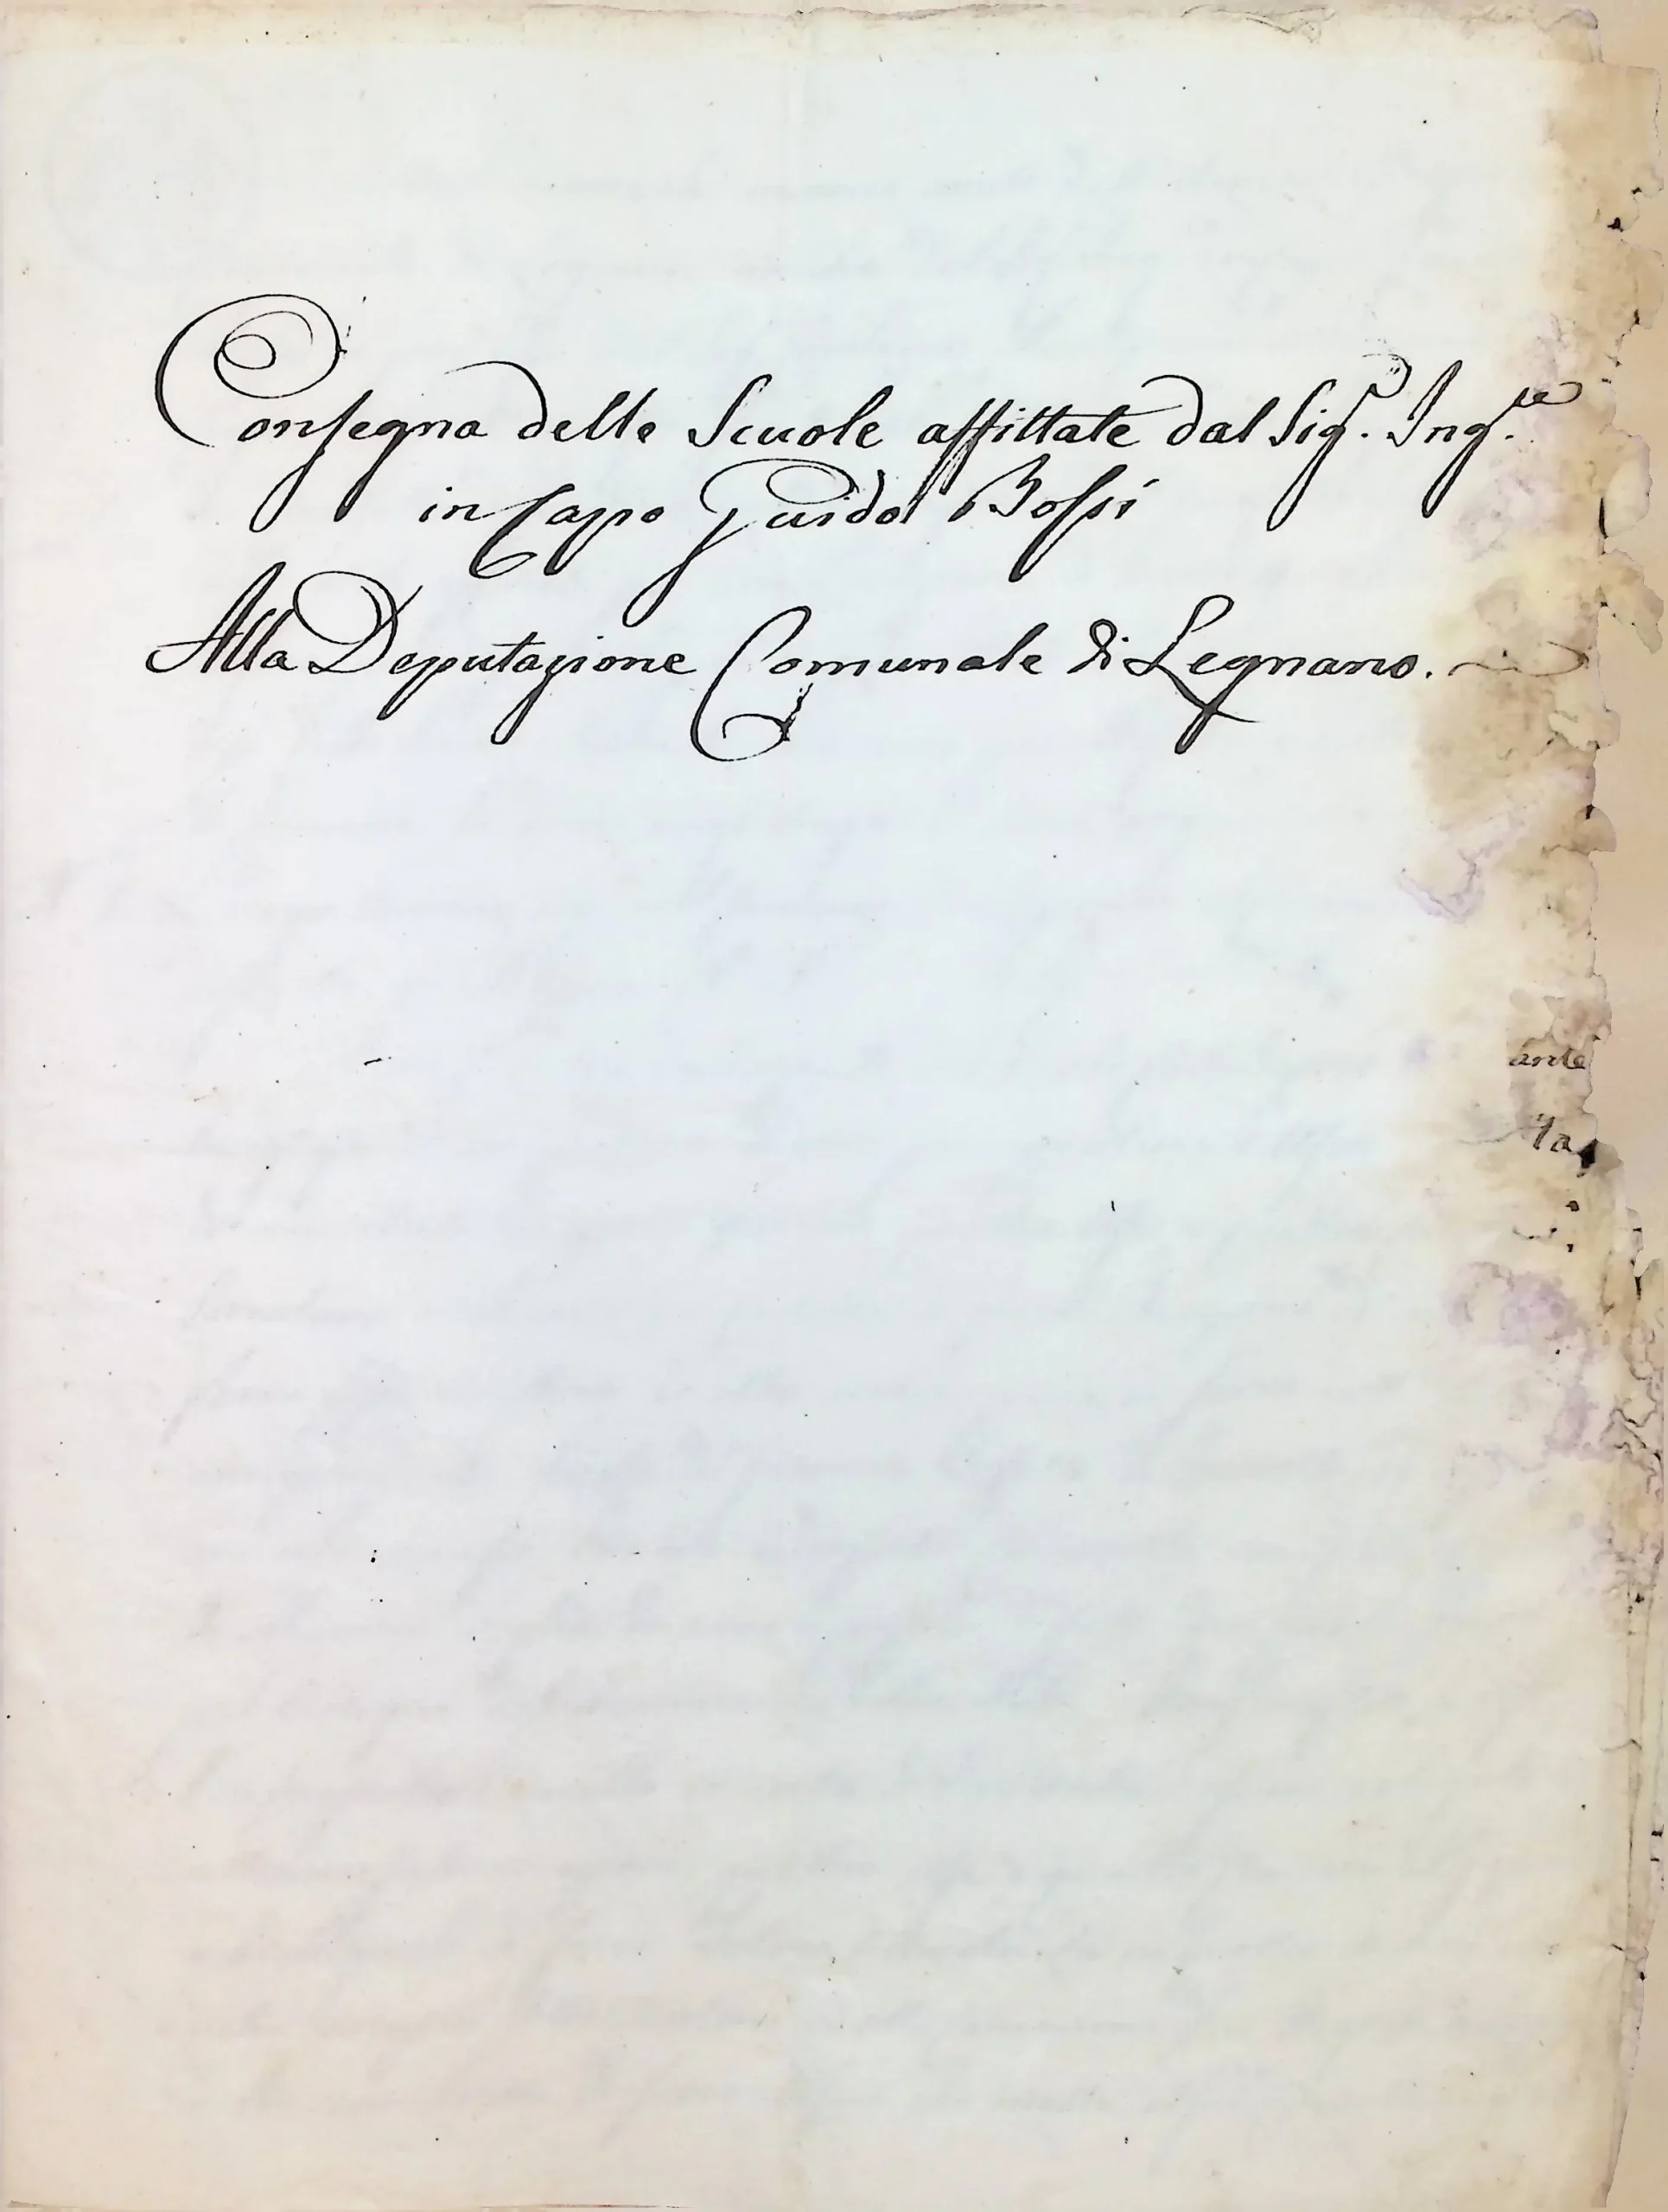 Consegna delle Scuole affittate dal Sig.r Ing.re
in Capo Guido Bossi
Alla Deputazione Comunale di Legnano.
ante